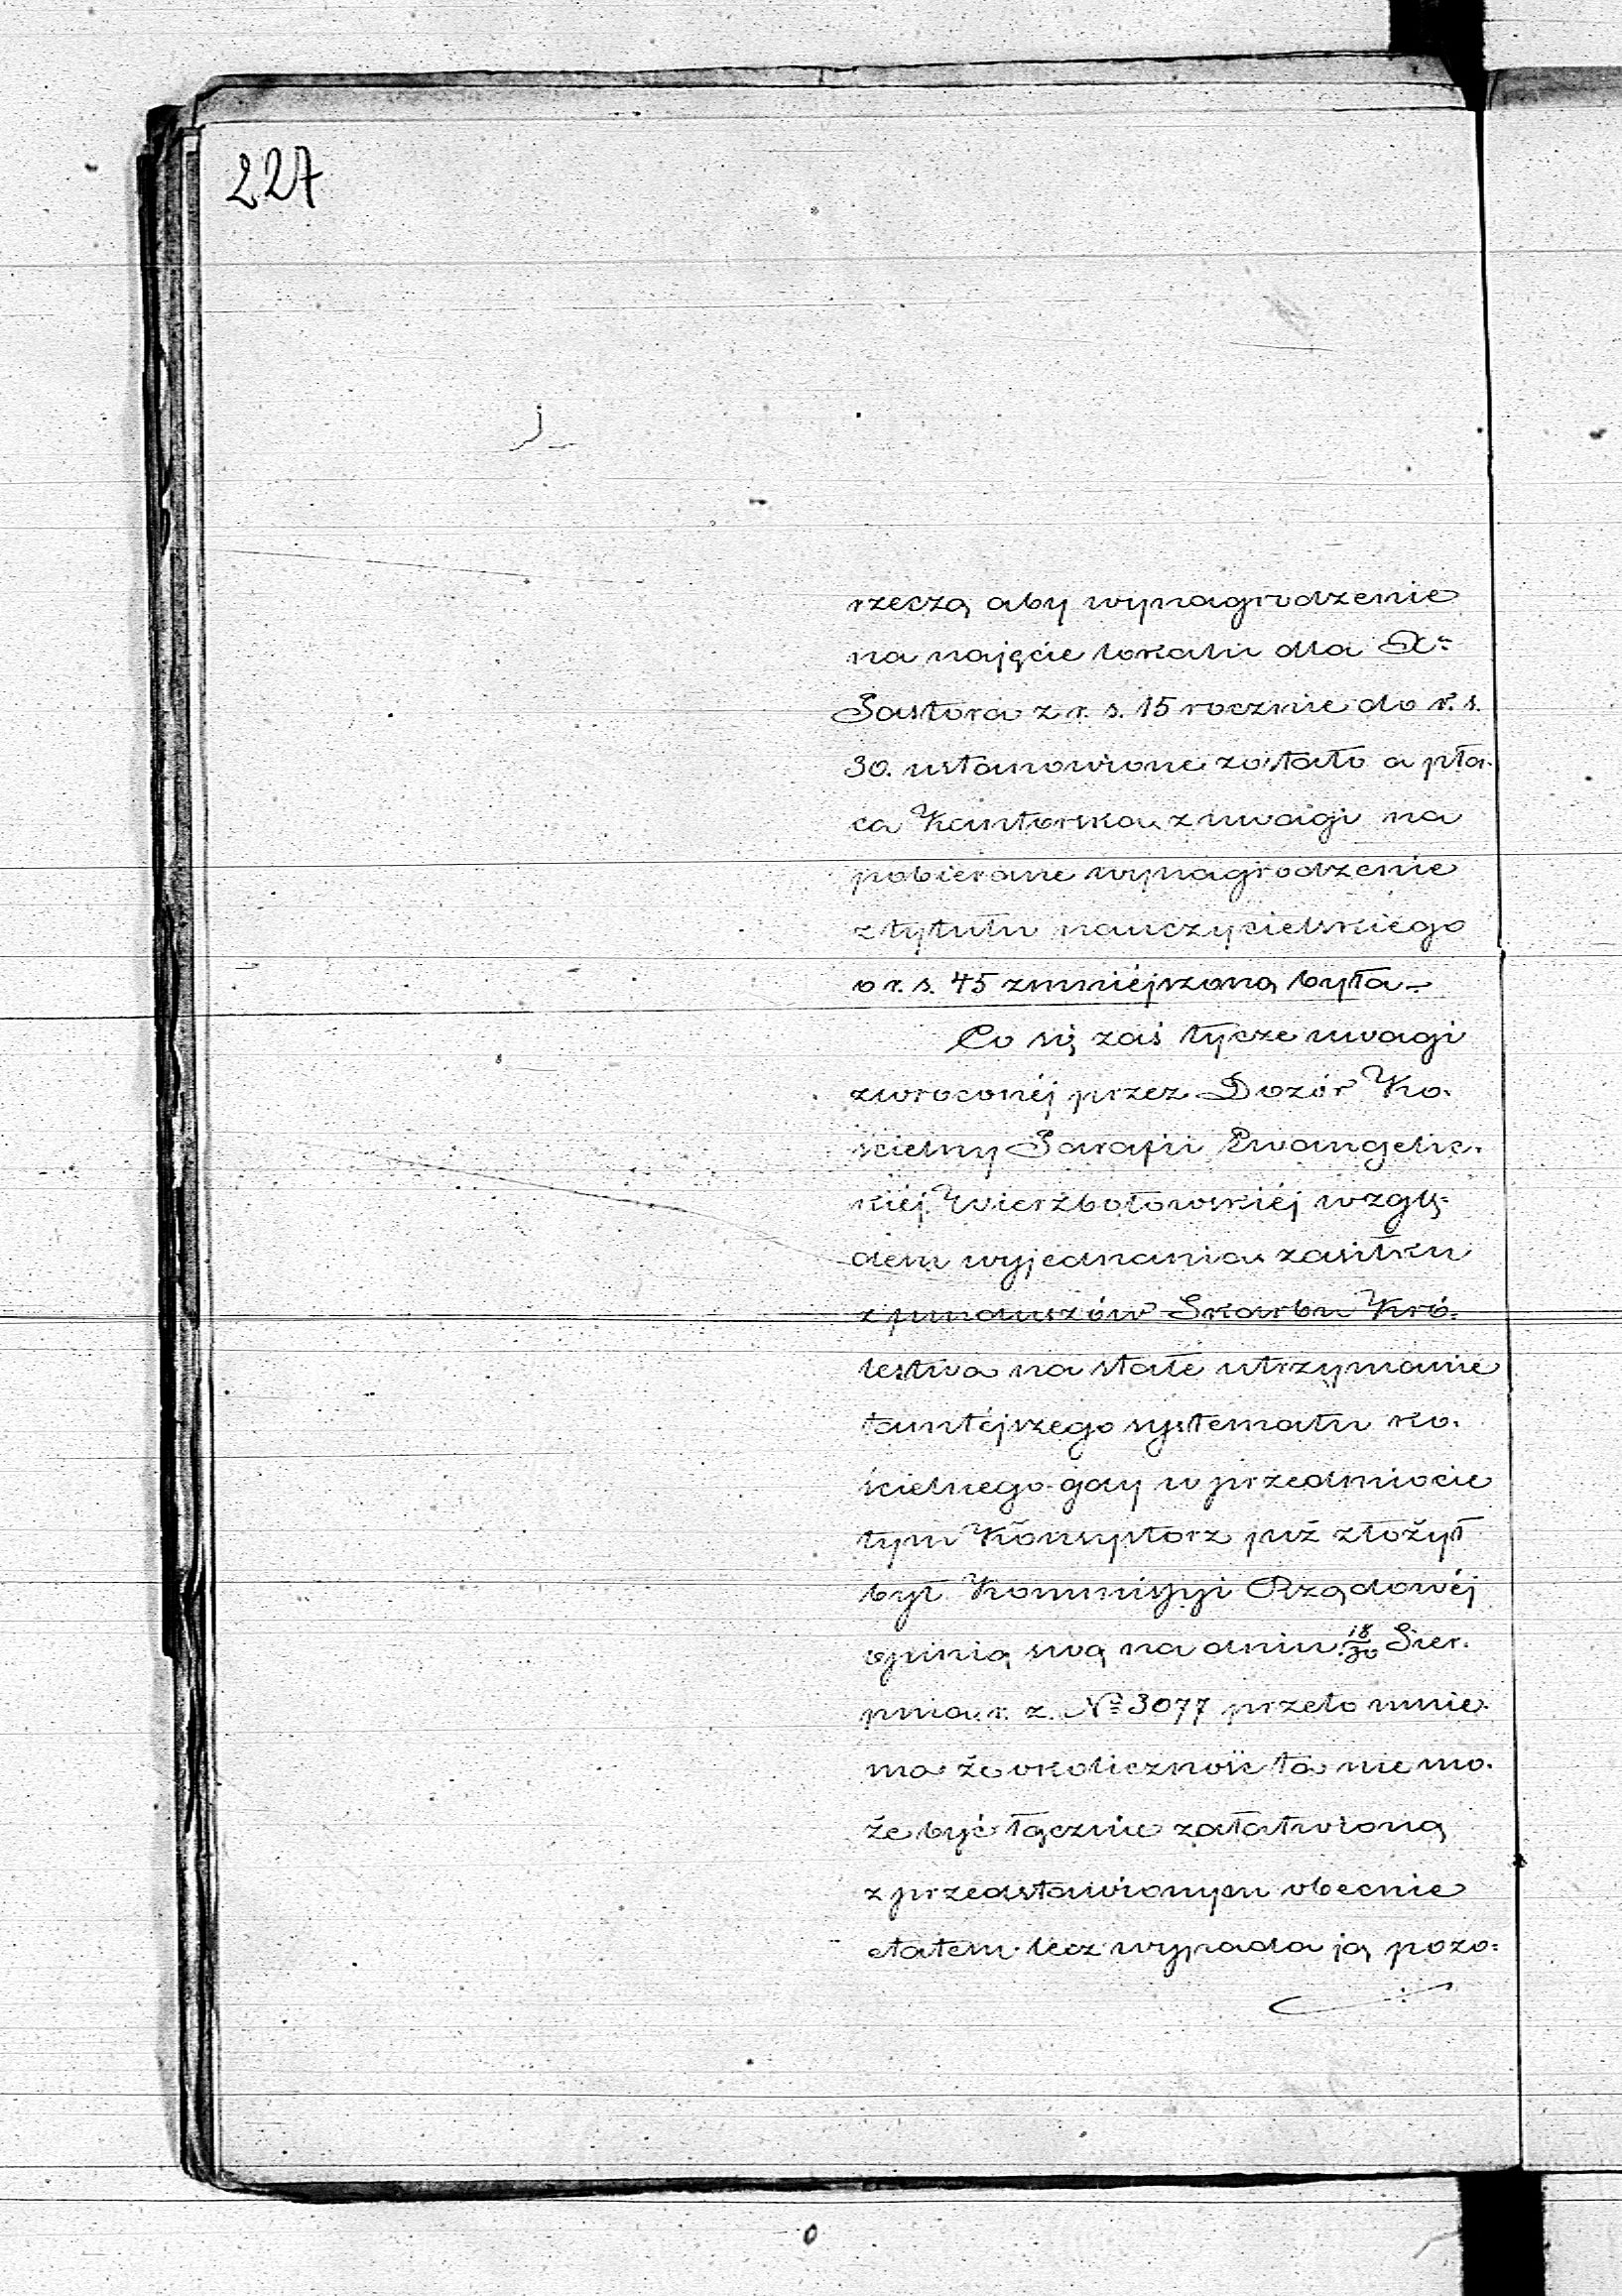 227
rzeczą aby wynagrodzenie
na najęcie lokalu dla X:
Pastora z r. s. 15 rocznie do r. s.
30. ustanowione zostało a pła-
ca Kantorska z uwagi na
pobierane wynagrodzenie
z tytułu nauczycielskiego
o r. s. 45 zmniejszoną była.-
Co się zaś tycze uwagi
zwroconéj przez Dozór Ko-
ścielny Parafii Ewangelic-
kiéj Wierzbołowskiéj wzglę-
dem wyjednania zasiłku
z funduszów Skarbu Kró-
lestwa na stałe utrzymanie
tamtéjszego systematu ko-
ścielnego gdy w przedmiocie
tym Konsystorz już złożył
był Kommissyi Rządowéj
opinią swą na dniu 18/30 Sier-
pnia r. z. № 3077 przeto mnie-
ma że okoliczność ta nie mo-
że być łącznie załatwioną
z przedstawionym obecnie
etatem lecz wypada ją pozo-